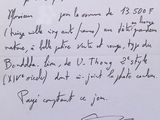 Monsieur pour la somme de 13.500 F
(treize mille cinq cent francs) un
nature, à belle patine verte et rouge, type du
Bouddha, Siam, de U. Thong 2e style
(XIVe siècle) dont ci-joint la photo couleur.
Payé comptant ce jour.